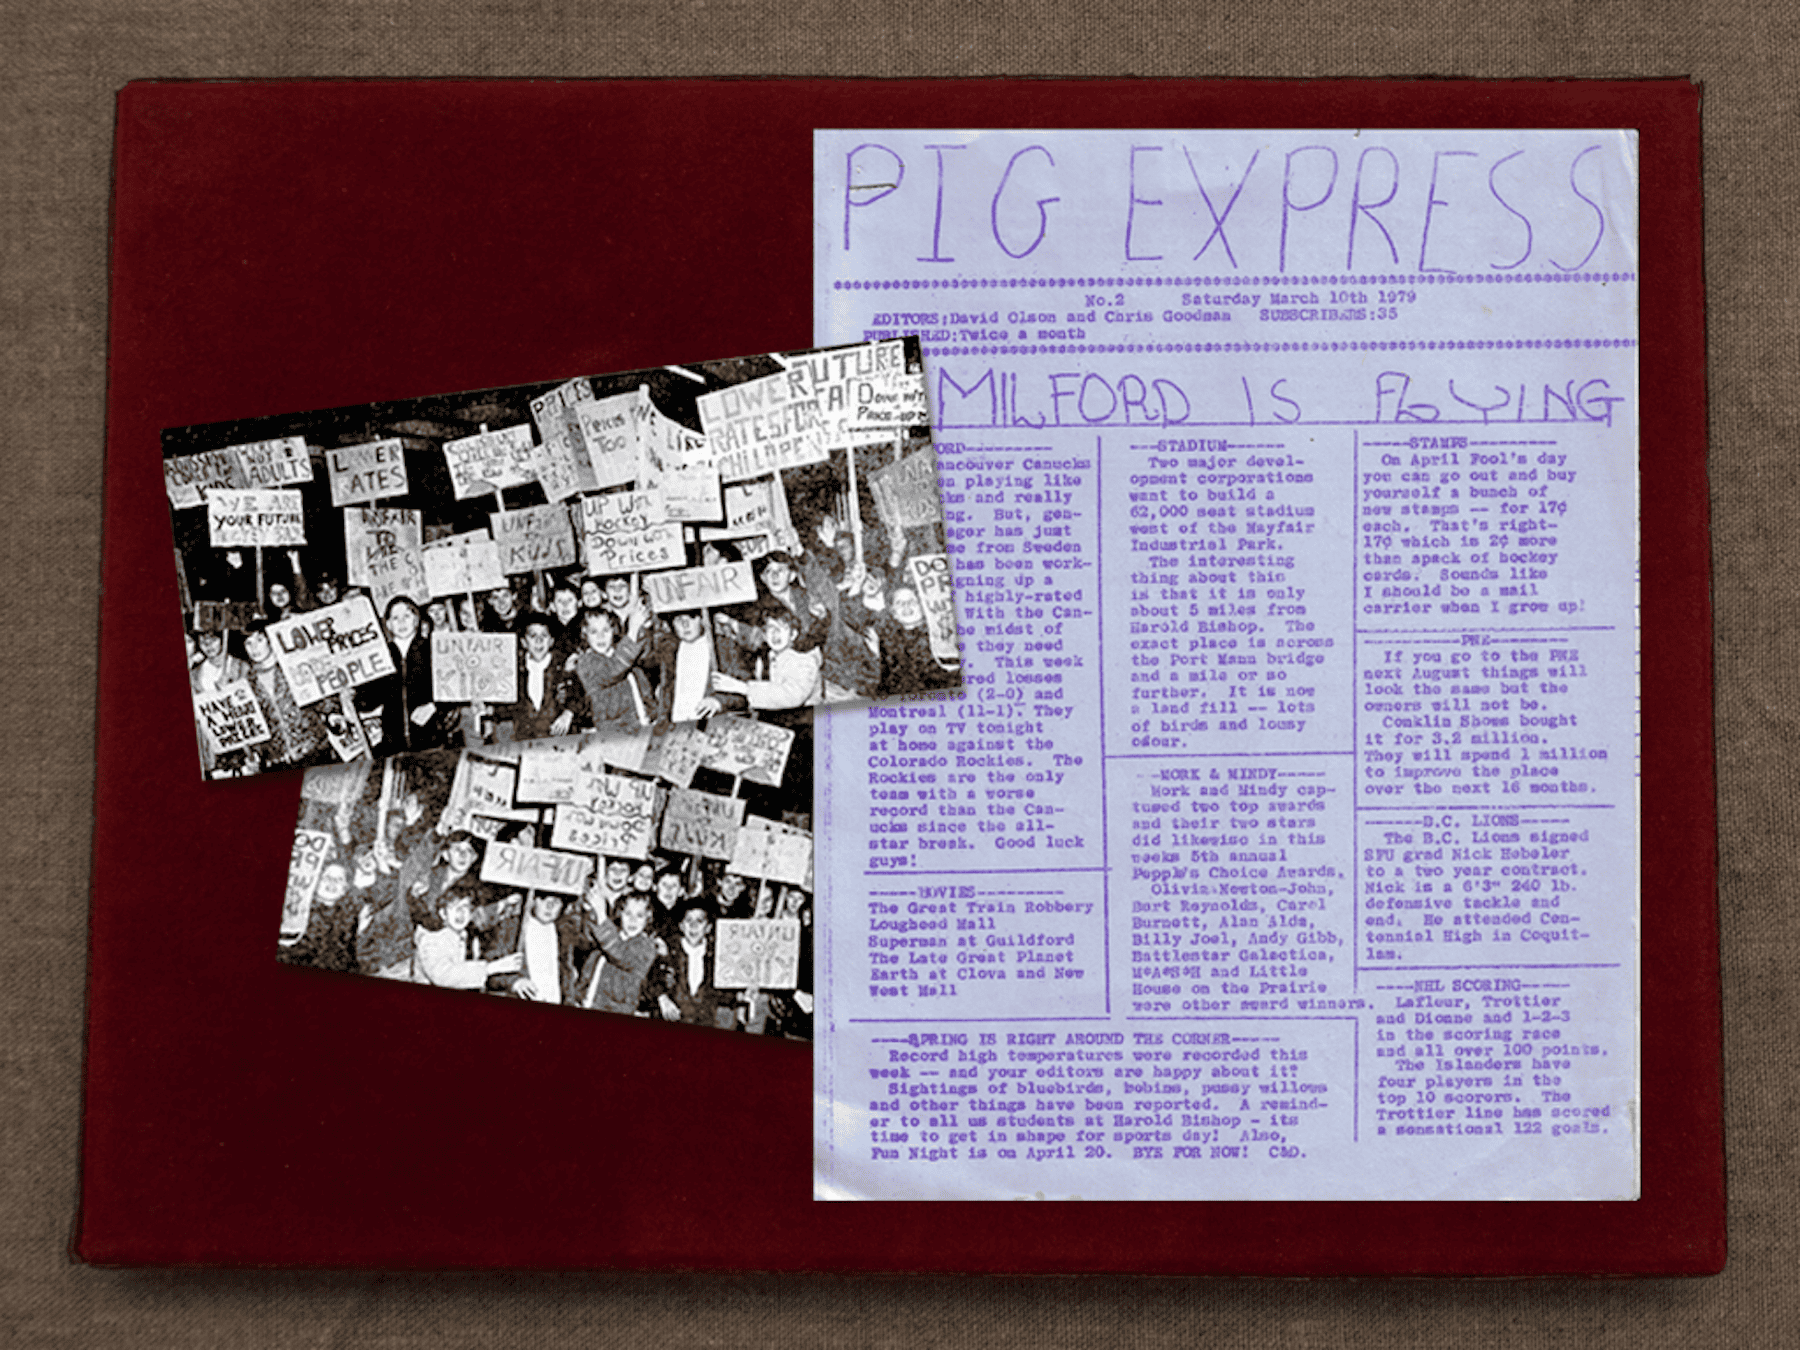 PIG EXPRESS
No.2 Saturday March 10th 1979
EDITORS;David Olson and Chris Goodman SUBSCRIBERS:35
PUBLISHED:Twice a month
MILFORD IS FLYING
ORD-----------
ancouver Canucks
n playing like
cks and really
ng. But, gen-
ager has just
me from Sweden
has been work-
igning up a
highly-rated
With the Can-
he midst of
they need
y. This week
red losses
to Toronto (2-0) and
Montreal (11-1). They
play on TV tonight
at home against the
Colorado Rockies. The
Rockies are the only
team with a worse
record than the Can-
ucks since the all-
star break. Good luck
guys!
-----MOVIES---------
The Great Train Robbery
Lougheed Mall
Superman at Guildford
The Late Great Planet
Earth at Clova and New
West Mall
---STADIUM------
Two major devel-
opment corporations
want to build a
62,000 seat stadium
west of the Mayfair
Industrial Park.
The interesting
thing about this
is that it is only
about 5 miles from
Harold Bishop. The
exact place is across
the Port Mann bridge
and a mile or so
further. It is now
a land fill -- lots
of birds and lousy
odour.
--MORK & MINDY-----
Mork and Mindy cap-
tured two top awards
and their two stars
did likewise in this
weeks 5th annual
People's Choice Awards.
Olivia Newton-John,
Burt Reynolds, Carol
Burnett, Alan Alda,
Billy Joel, Andy Gibb,
Battlestar Galactica,
M*A*S*H and Little
House on the Prairie
were other award winners.
-----STAMPS---------
On April Fool's day
you can go out and buy
yourself a bunch of
new stamps -- for 17¢
each. That's right-
17¢ which is 2¢ more
than apack of hockey
cards. Sounds like
I should be a mail
carrier when I grow up!
---------PNE---------
If you go to the PNE
next August things will
look the same but the
owners will not be.
Conklin Shows bought
it for 3.2 million.
They will spend 1 million
to improve the place
over the next 16 months.
------B.C. LIONS-----
The B.C. Lions signed
SFU grad Nick Hebeler
to a two year contract.
Nick is a 6'3" 240 lb.
defensive tackle and
end. He attended Cen-
tennial High in Coquit-
lam.
----NHL SCORING-----
Lafleur, Trottier
and Dionne and 1-2-3
in the scoring race
and all over 100 points.
The Islanders have
four players in the
top 10 scorers. The
Trottier line has scored
a sensational 122 goals.
----SPRING IS RIGHT AROUND THE CORNER-----
Record high temperatures were recorded this
week -- and your editors are happy about it!
Sightings of bluebirds, bobins, pussy willows
and other things have been reported. A remind-
er to all us students at Harold Bishop - its
time to get in shape for sports day! Also,
Fun Night is on April 20. BYE FOR NOW! C&D.
ADULTS
WE ARE
YOUR FUTURE
LOWER
RATES
UNFAIR
TO
THE
PRICES
TOO
LOWER
RATES FOR
CHILDREN
FUTURE
UNFAIR
TO
KIDS
UP WITH
HOCKEY
DOWN WITH
PRICES
UNFAIR
DOWN WITH
PRICES
LOWER
PRICES
PEOPLE
UNFAIR
TO
KIDS
HAVE
A HEART
LOWER
PRICES
UNFAIR
UNFAIR
TO
KIDS